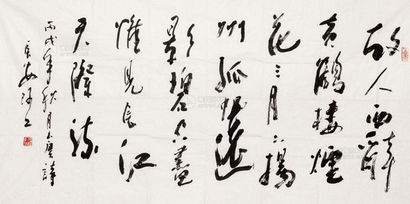 故人西辞
黄鹤楼烟
花三月下扬
州孤帆远
影碧空尽
惟见长江
天际流
丙戌年秋月唐诗
长安